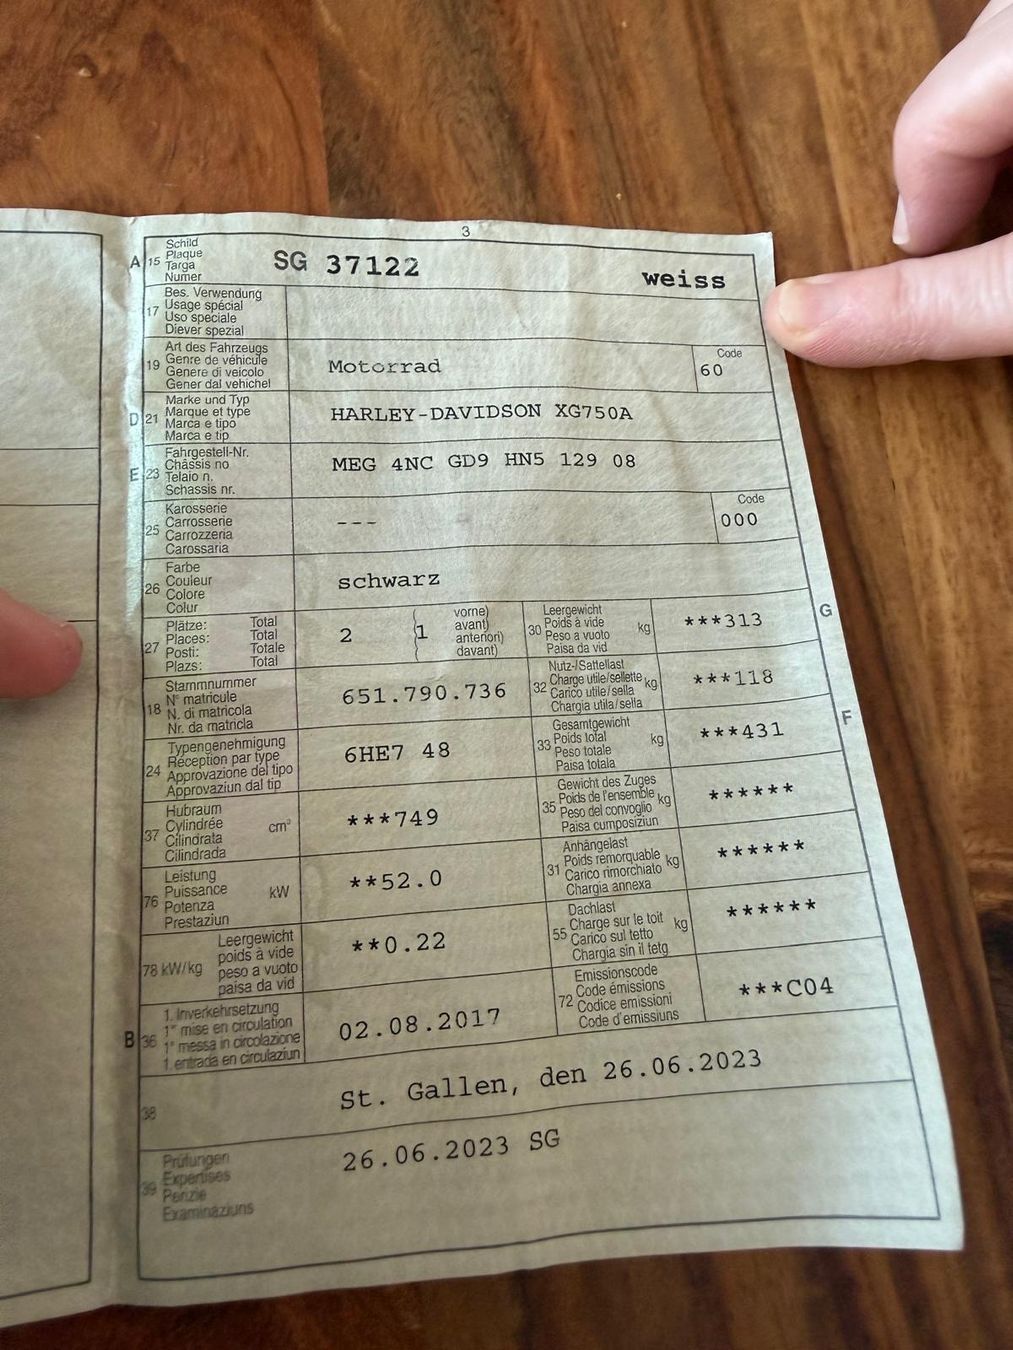 3
A 15 Schild
Plaque
Targa
Numer
SG 37122 weiss
17 Bes. Verwendung
Usage spécial
Uso speciale
Diever spezial
19 Art des Fahrzeugs
Genre de véhicule
Genere di veicolo
Gener dal vehichel
Motorrad
Code
60
D 21 Marke und Typ
Marque et type
Marca e tipo
Marca e tip
HARLEY-DAVIDSON XG750A
E 23 Fahrgestell-Nr.
Châssis no
Telaio n.
Schassis nr.
MEG 4NC GD9 HN5 129 08
25 Karosserie
Carrosserie
Carrozzeria
Carossaria
---
Code
000
26 Farbe
Couleur
Colore
Colur
schwarz
27 Plätze: Total
Places: Total
Posti: Totale
Plazs: Total
2 (1 vorne)
avant)
anteriori)
davant)
G
30 Leergewicht
Poids à vide
Peso a vuoto kg
Paisa da vid
***313
18 Stammnummer
N° matricule
N. di matricola
Nr. da matricla
651.790.736
32 Nutz-/Sattellast
Charge utile/sellette kg
Carico utile/sella
Chargia utila/sella
***118
F
24 Typengenehmigung
Réception par type
Approvazione del tipo
Approvaziun dal tip
6HE7 48
33 Gesamtgewicht
Poids total kg
Peso totale
Paisa totala
***431
37 Hubraum
Cylindrée cm³
Cilindrata
Cilindrada
***749
35 Gewicht des Zuges
Poids de l'ensemble kg
Peso del convoglio
Paisa cumposiziun
******
76 Leistung
Puissance kW
Potenza
Prestaziun
**52.0
31 Anhängelast
Poids remorquable kg
Carico rimorchiato
Chargia annexa
******
78 kW/kg Leergewicht
poids à vide
peso a vuoto
paisa da vid
**0.22
55 Dachlast
Charge sur le toit kg
Carico sul tetto
Chargia sin il tetg
******
B 36 1. Inverkehrsetzung
1re mise en circulation
1a messa in circolazione
1. entrada en circulaziun
02.08.2017
72 Emissionscode
Code émissions
Codice emissioni
Code d'emissiuns
***C04
38 St. Gallen, den 26.06.2023
39 Prüfungen
Expertises
Perizie
Examinaziuns
26.06.2023 SG